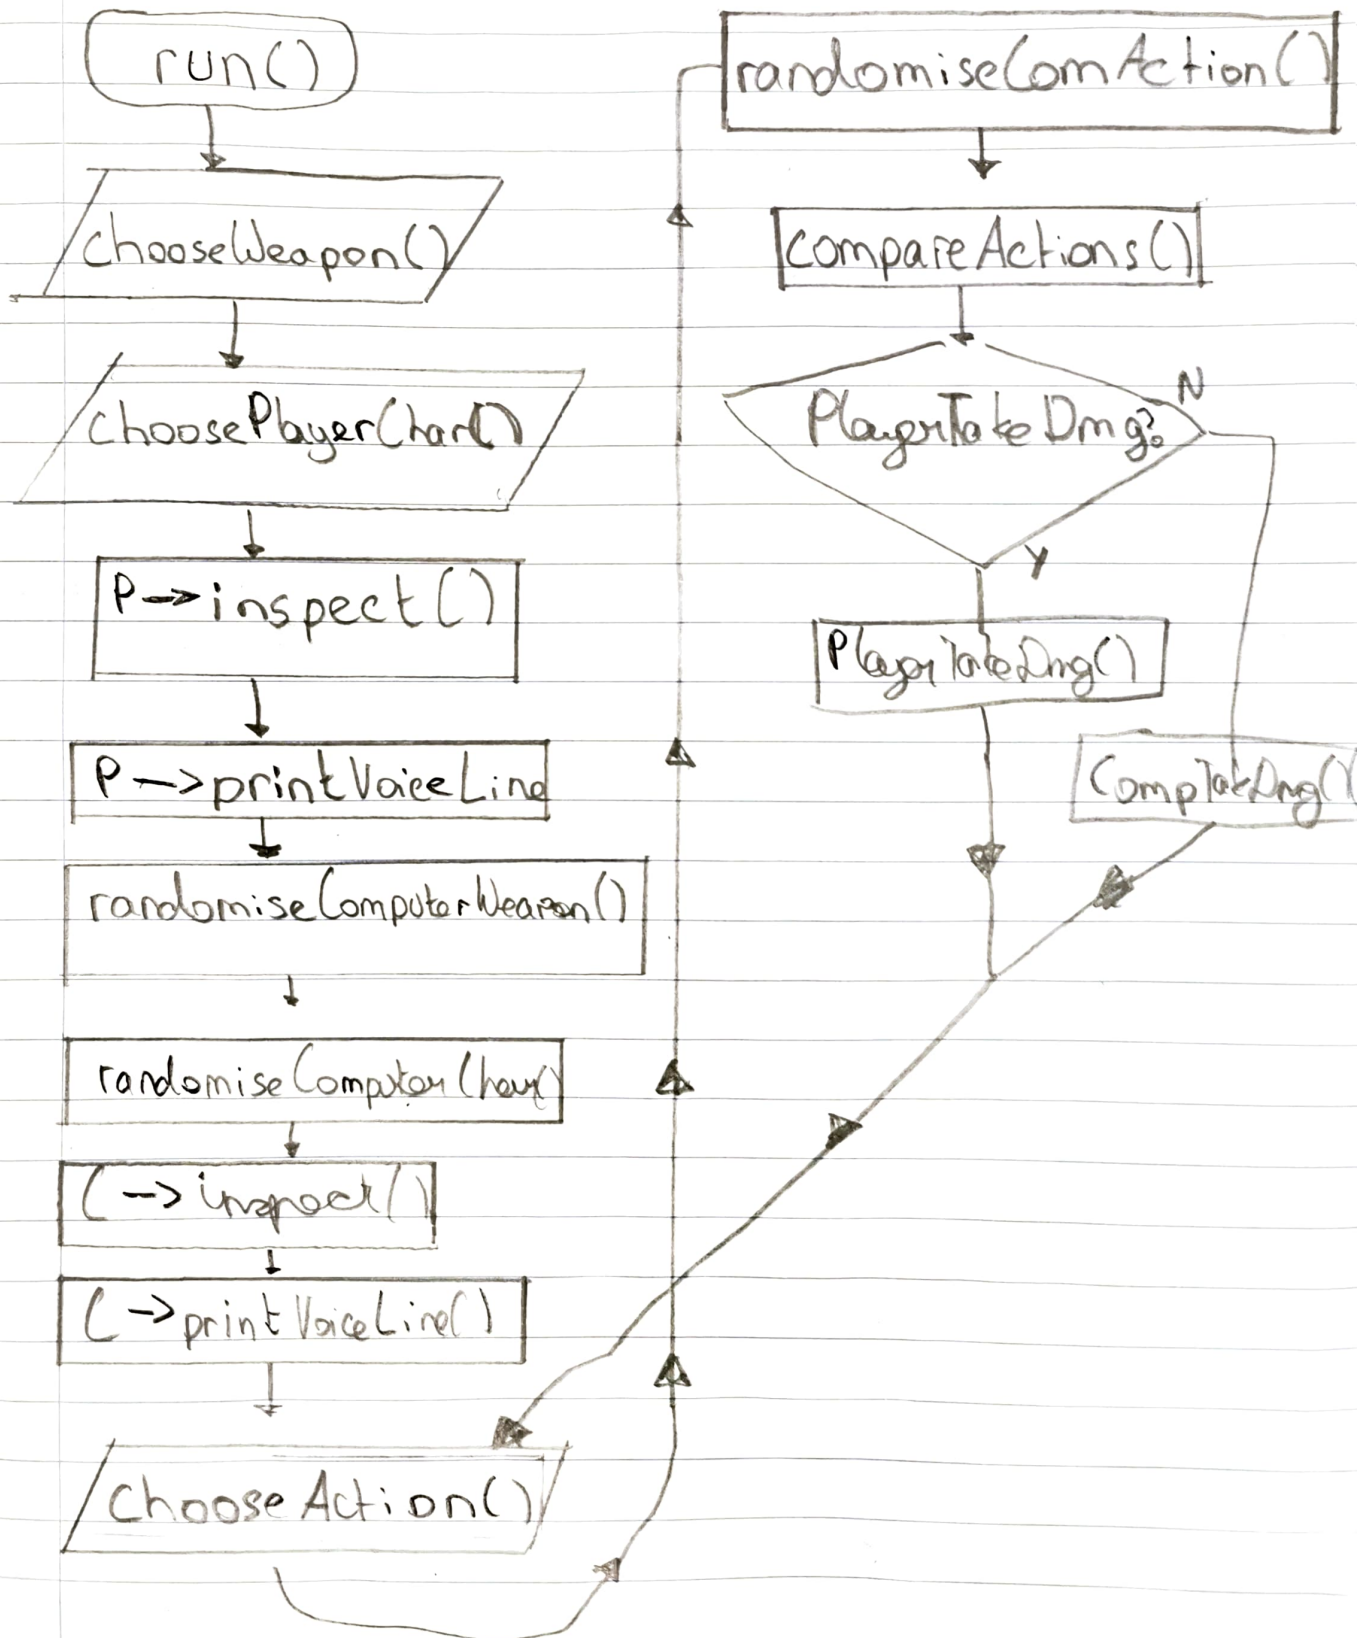 run()
chooseWeapon()
choosePlayerChar()
P->inspect()
P->printVoiceLine
randomiseComputerWeapon()
randomiseComputerChar()
C->inspect()
C->printVoiceLine()
chooseAction()
randomiseComAction()
compareActions()
PlayerTakeDmg?
N
Y
PlayerTakeDmg()
CompTakeDmg()